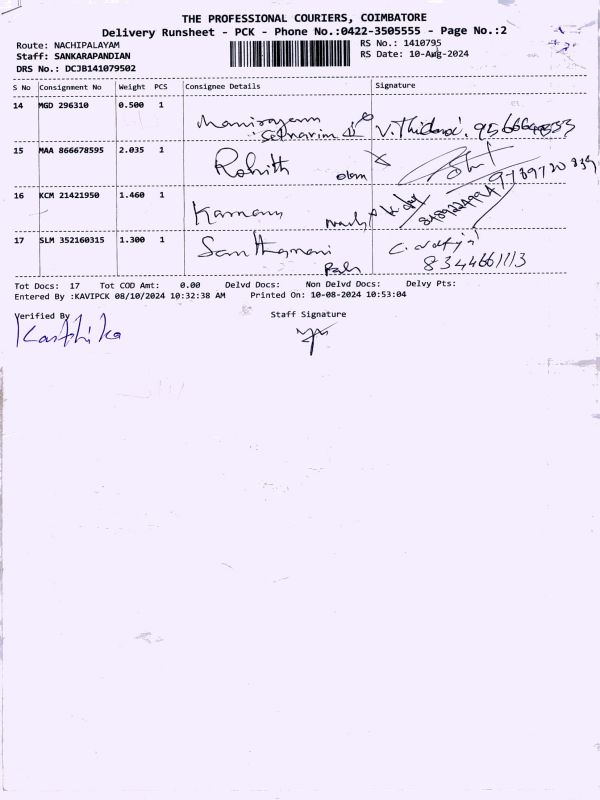 THE PROFESSIONAL COURIERS, COIMBATORE
Delivery Runsheet - PCK - Phone No.:0422-3505555 - Page No.:2
Route: NACHIPALAYAM
Staff: SANKARAPANDIAN
DRS No.: DCJB141079502
RS No.: 1410795
RS Date: 10-Aug-2024
S No Consignment No Weight PCS Consignee Details Signature
14 MGD 296310 0.500 1
V. 
15 MAA 866678595 2.035 1 Rohith
16 KCM 21421950 1.460 1
17 SLM 352160315 1.300 1
8344661113
Tot Docs: 17 Tot COD Amt: 0.00 Delvd Docs: Non Delvd Docs: Delvy Pts:
Entered By :KAVIPCK 08/10/2024 10:32:38 AM Printed On: 10-08-2024 10:53:04
Verified By Staff Signature